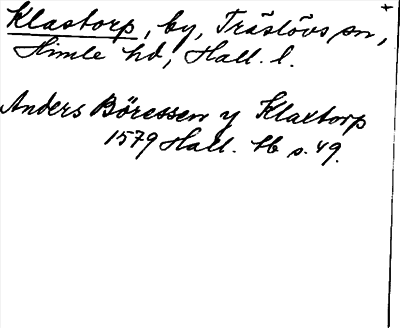 Klastorp, by, Träslövs sn,
Himle hd, Hall. l.
Anders Böressen y Klaxtorp
1579 Hall. tb s. 49.